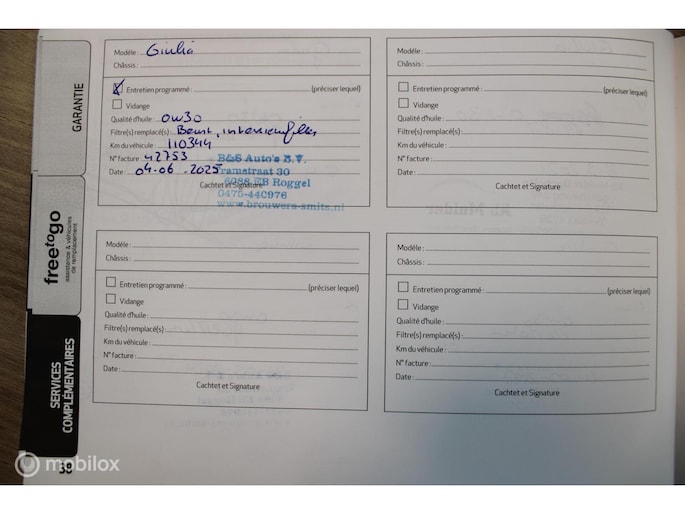 GARANTIE
freetogo
assistance & véhicules
de remplacement
SERVICES
COMPLÉMENTAIRES
38
Modèle : Giulia
Châssis :
Entretien programmé : (préciser lequel)
Vidange
Qualité d'huile : 0W30
Filtre(s) remplacé(s) :
Km du véhicule : 110344
N° facture : 42753
Date : 04-06-2025
Cachtet et Signature
B&S Auto's B.V.
Tramstraat 30
6088 EB Roggel
0475-440976
www.brouwers-smits.nl
Modèle :
Châssis :
Entretien programmé : (préciser lequel)
Vidange
Qualité d'huile :
Filtre(s) remplacé(s) :
Km du véhicule :
N° facture :
Date :
Cachtet et Signature
Modèle :
Châssis :
Entretien programmé : (préciser lequel)
Vidange
Qualité d'huile :
Filtre(s) remplacé(s) :
Km du véhicule :
N° facture :
Date :
Cachtet et Signature
Modèle :
Châssis :
Entretien programmé : (préciser lequel)
Vidange
Qualité d'huile :
Filtre(s) remplacé(s) :
Km du véhicule :
N° facture :
Date :
Cachtet et Signature
mobilox